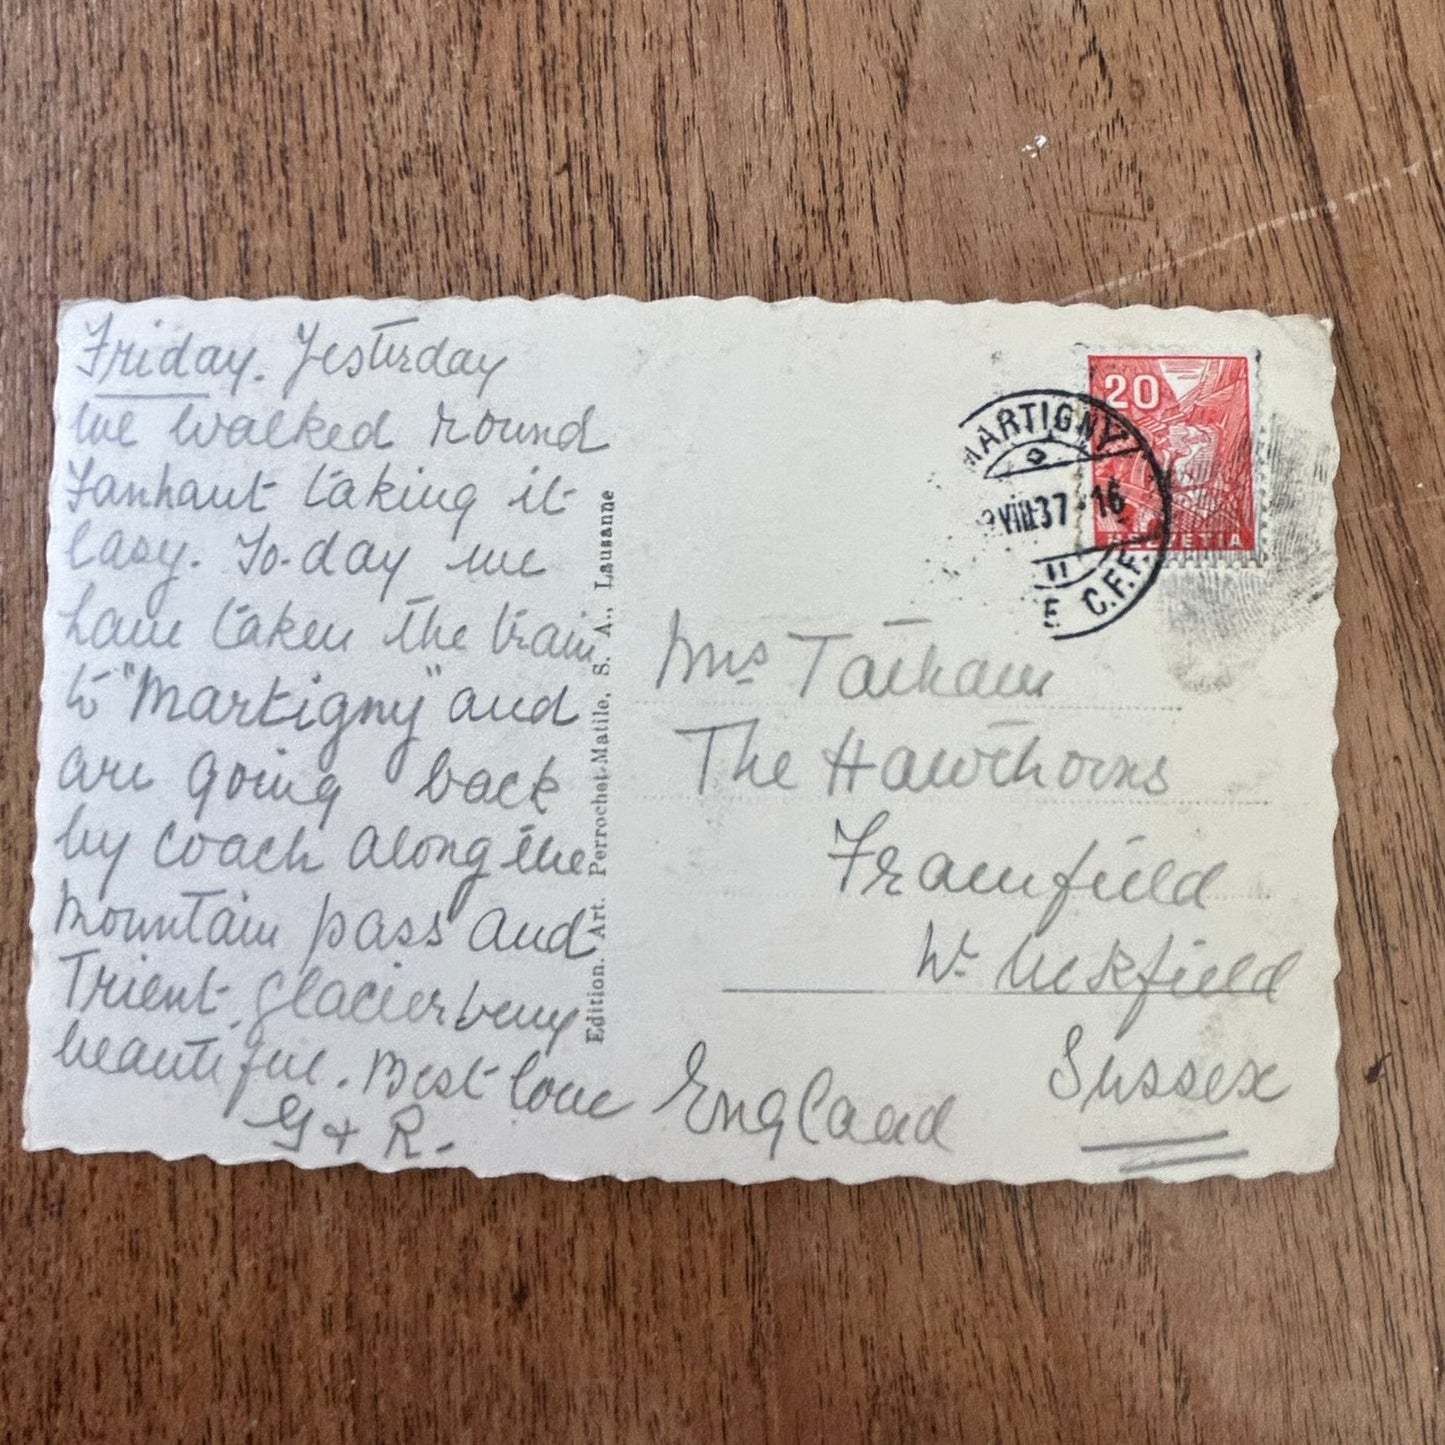 Friday. Yesterday
we walked round
Fanhaut taking it
easy. To-day we
have taken the train
to "Martigny" and
are going back
by coach along the
Mountain pass and
Trient glacier very
beautiful. Best love
G + R.
Edition. Art. Perrochet-Matile, S. A., Lausanne
20
HELVETIA
MARTIGNY
VIII 37 - 16
C.F.F.
Mrs Tatham
The Hawthorns
Framfield
Nr Uckfield
Sussex
England